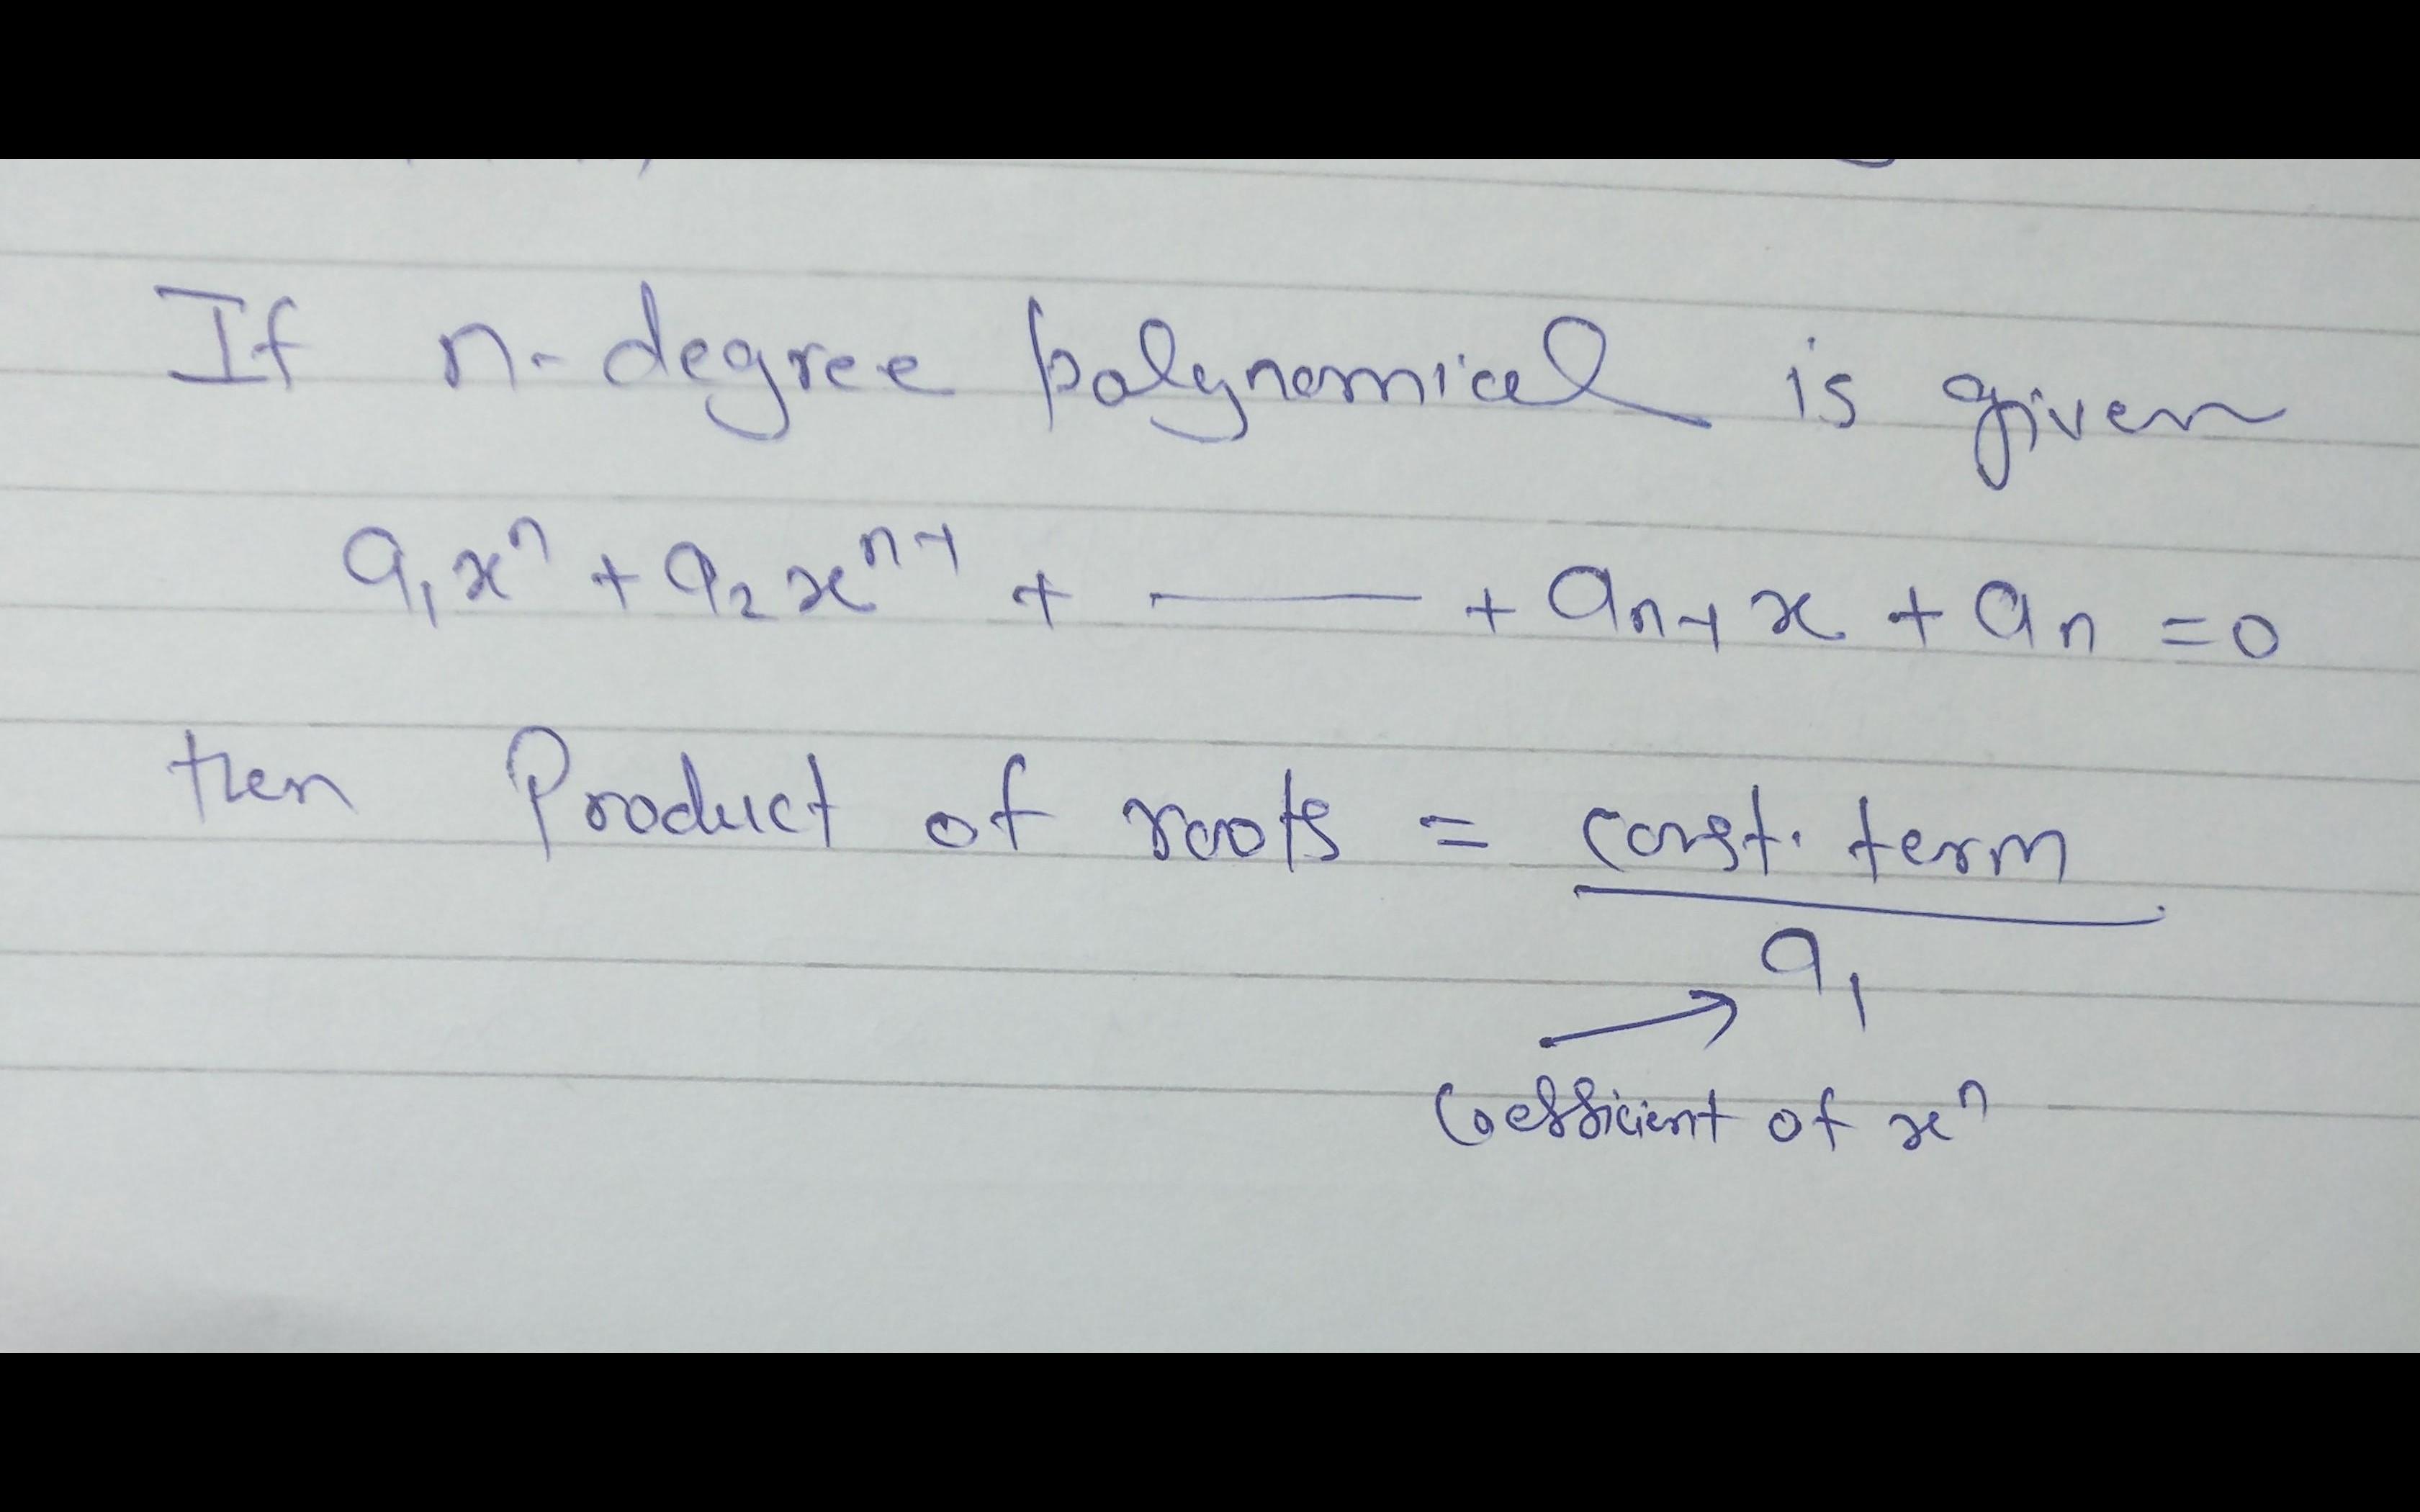 If n-degree polynomial is given
a₁xⁿ + a₂xⁿ⁻¹ + —— + aₙ₋₁x + aₙ = 0
then Product of roots = const. term / a₁
Coefficient of xⁿ